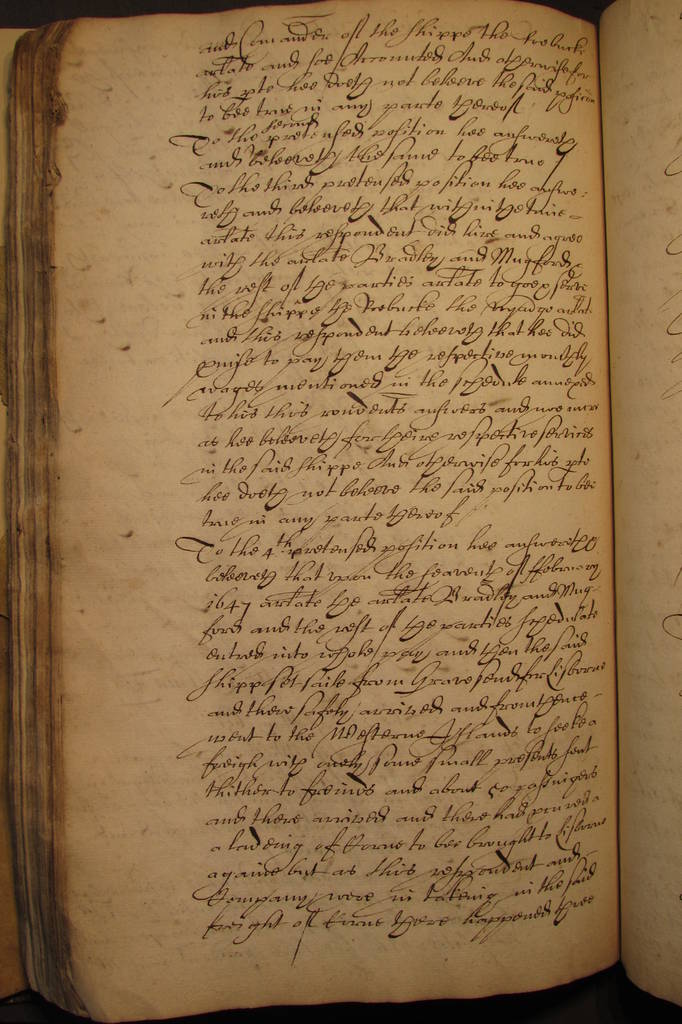 and Comander of the shippe the Roebucke
arlate and soe Accounted And otherwise for
his pte hee doeth not beleeve the said position
to bee true in any parte thereof
To the second pretensed position hee answereth
and beleeveth the same to bee true
To the third pretensed position hee answe:
reth and beleeveth that within the time
arlate this respondent did hire and agree
with the arlate Bradley and Mugford &
the rest of the parties arlate to goe & serve
in the shippe the Roebucke the voyage arlate
and this respondent beleeveth that hee did
pmise to pay them the respective monthly
wages mentioned in the schedule annexed
to his this rondents answers and noe more
as hee beleeveth for theire respective services
in the said shippe And otherwise for his pte
hee doeth not beleeve the said position to bee
true in any parte thereof
To the 4th pretensed position hee answereth &
beleeveth that upon the seaventh of ffebruary
1647 arlate the arlate Bradley and Mug-
ford and the rest of the parties schedulate
entred into whole pay and then the said
shipp set saile from Gravesend for Lisborne
and there safely arrived and from thence
went to the Westerne Islands to seeke a
freigh with onely some small presents sent
thither to freinds and about 50 passingers
and there arrived and there had pcured a
a loadeing of Corne to bee brought to Lisborne
againe but as this respondent and
Company were in takeing in the said
freight of Corne there happened three